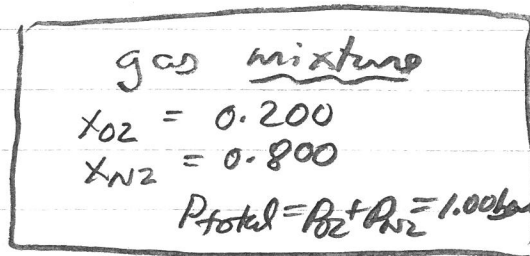 gas mixture
X_O2 = 0.200
X_N2 = 0.800
P_total = P_O2 + P_N2 = 1.00 bar